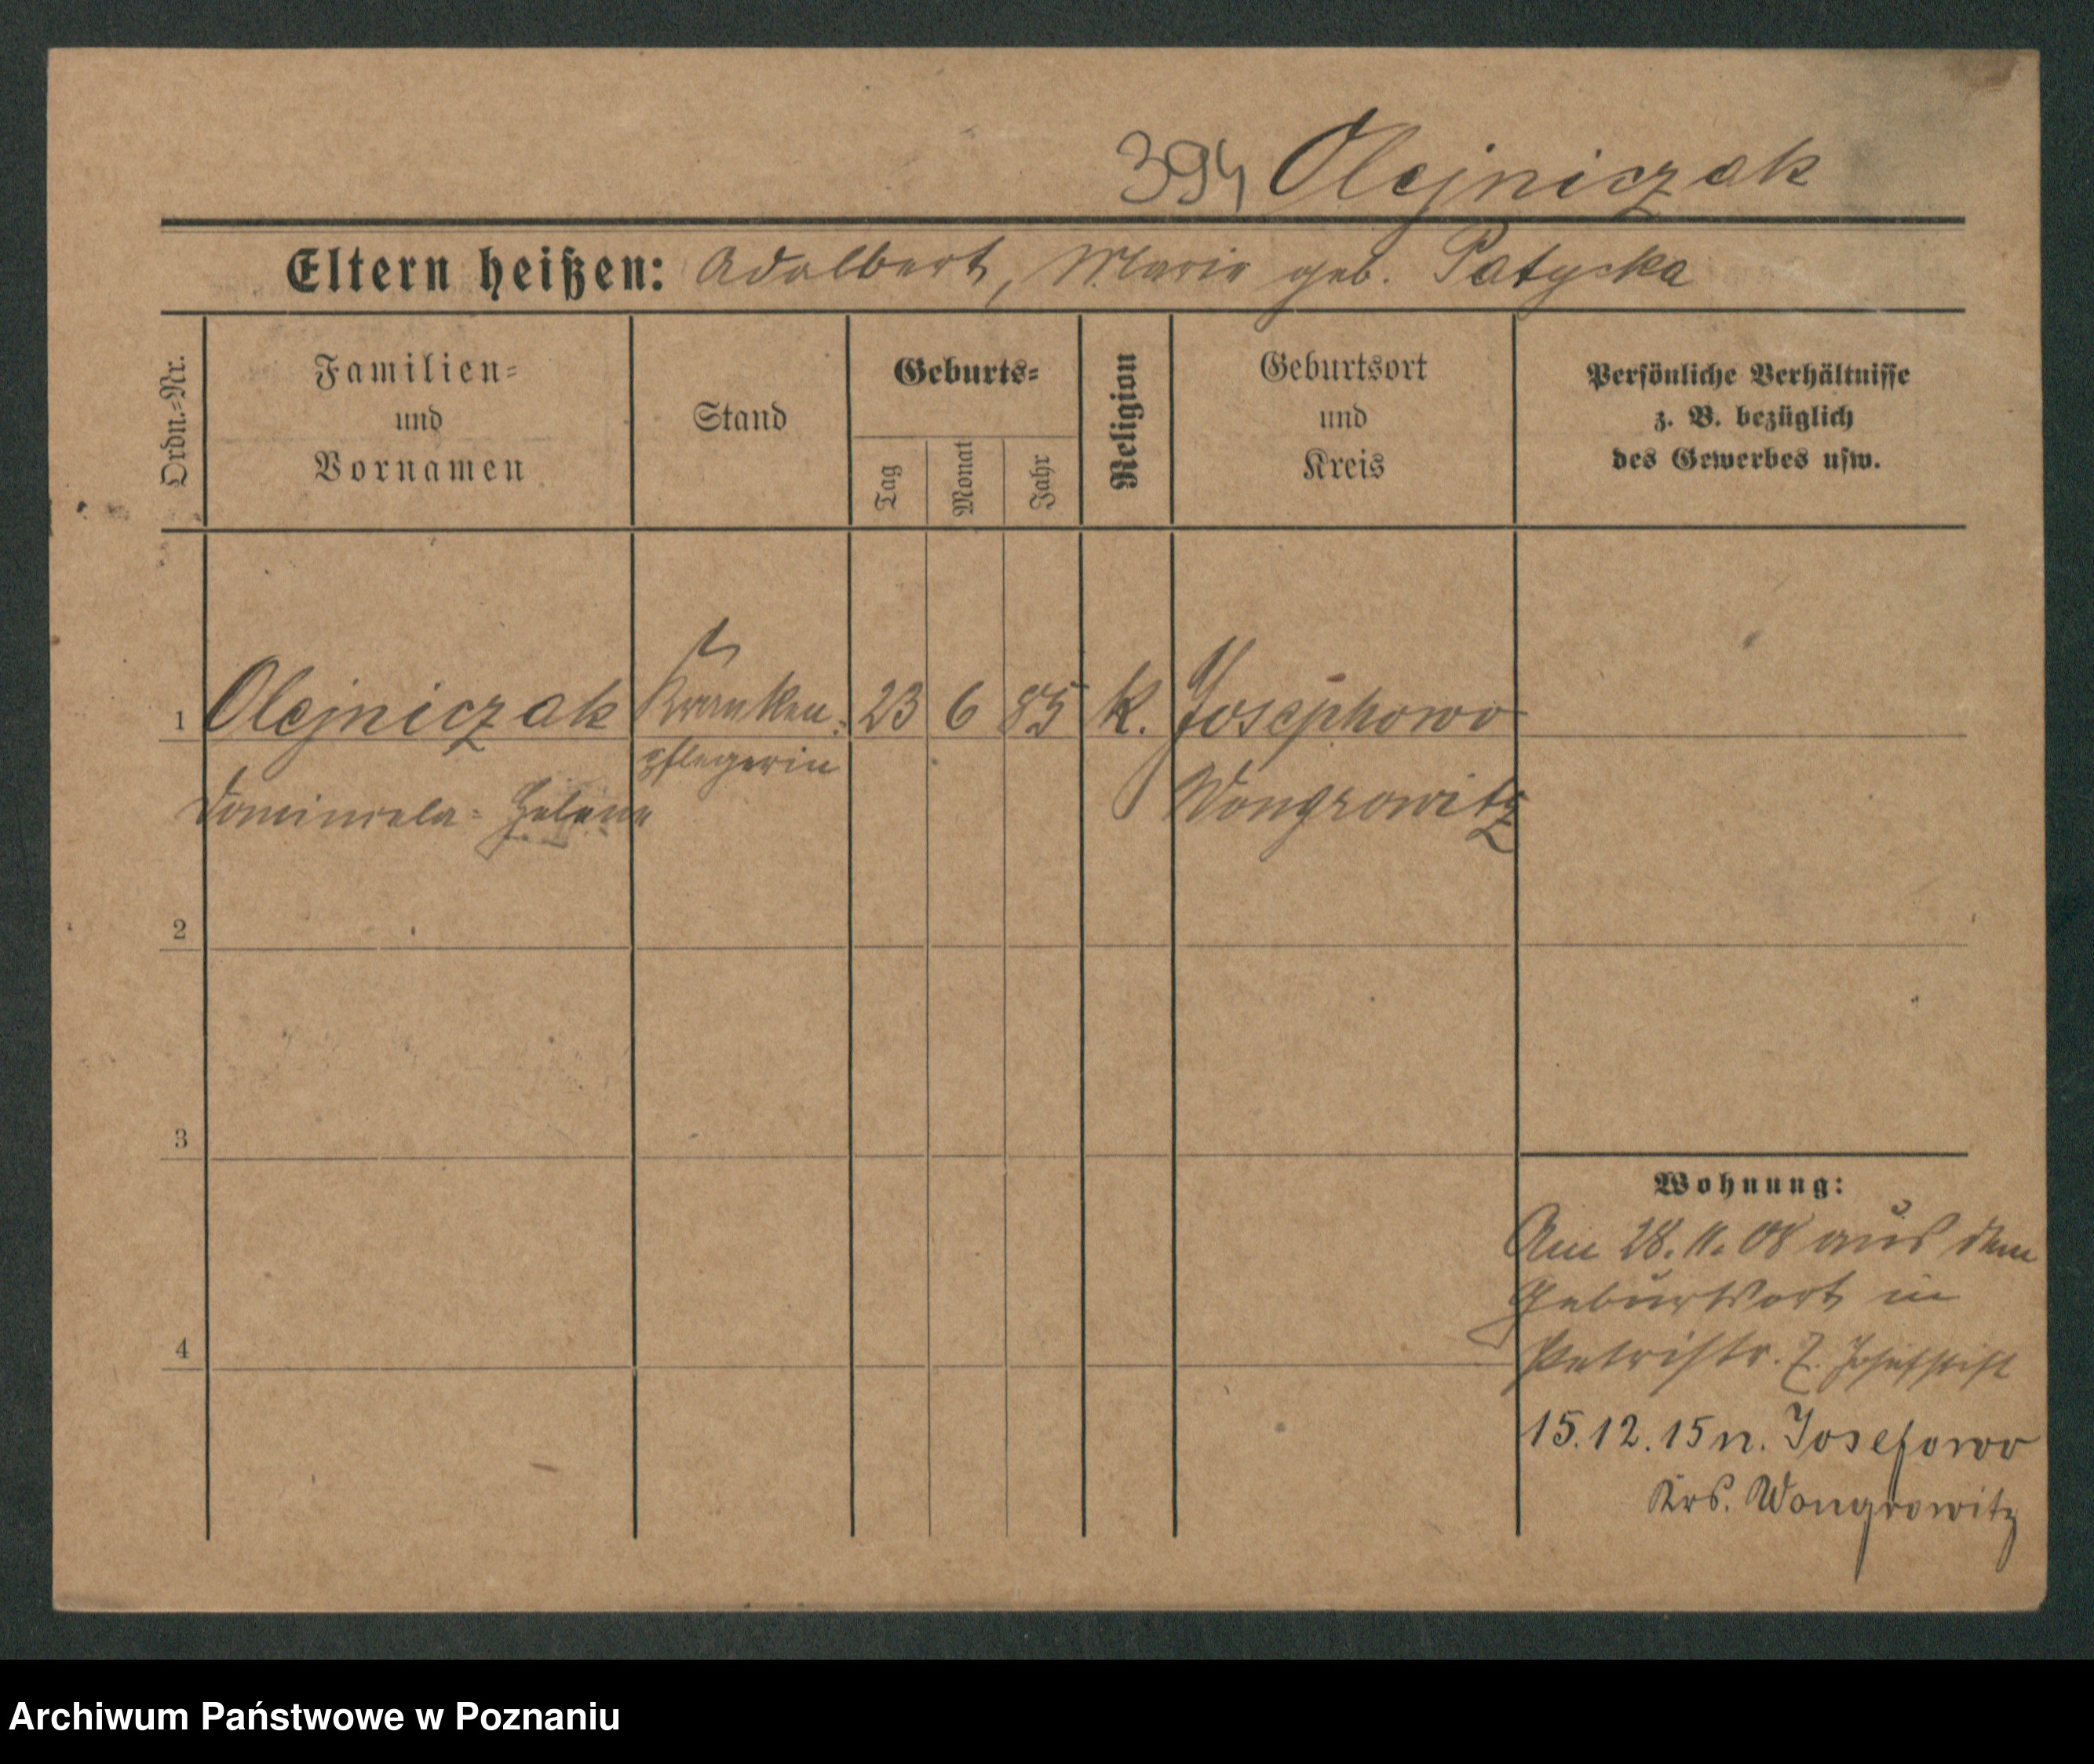 394 Olejniczak
Eltern heißen: Adalbert, Marie geb. Patycka
Ordn.-Nr.
Familien-
und
Vornamen
Stand
Geburts-
Tag
Monat
Jahr
Religion
Geburtsort
und
Kreis
Persönliche Verhältnisse
z. B. bezüglich
des Gewerbes usw.
1 Olejniczak Kranken- 23 6 85 k. Josephowo
pflegerin
Helene Wongrowitz
2
3
4
Wohnung:
Am 28.11.08 aus dem
Geburtsort in
Petristr. 7. Josefstift
15.12.15 n. Josefowo
Krs. Wongrowitz
Archiwum Państwowe w Poznaniu